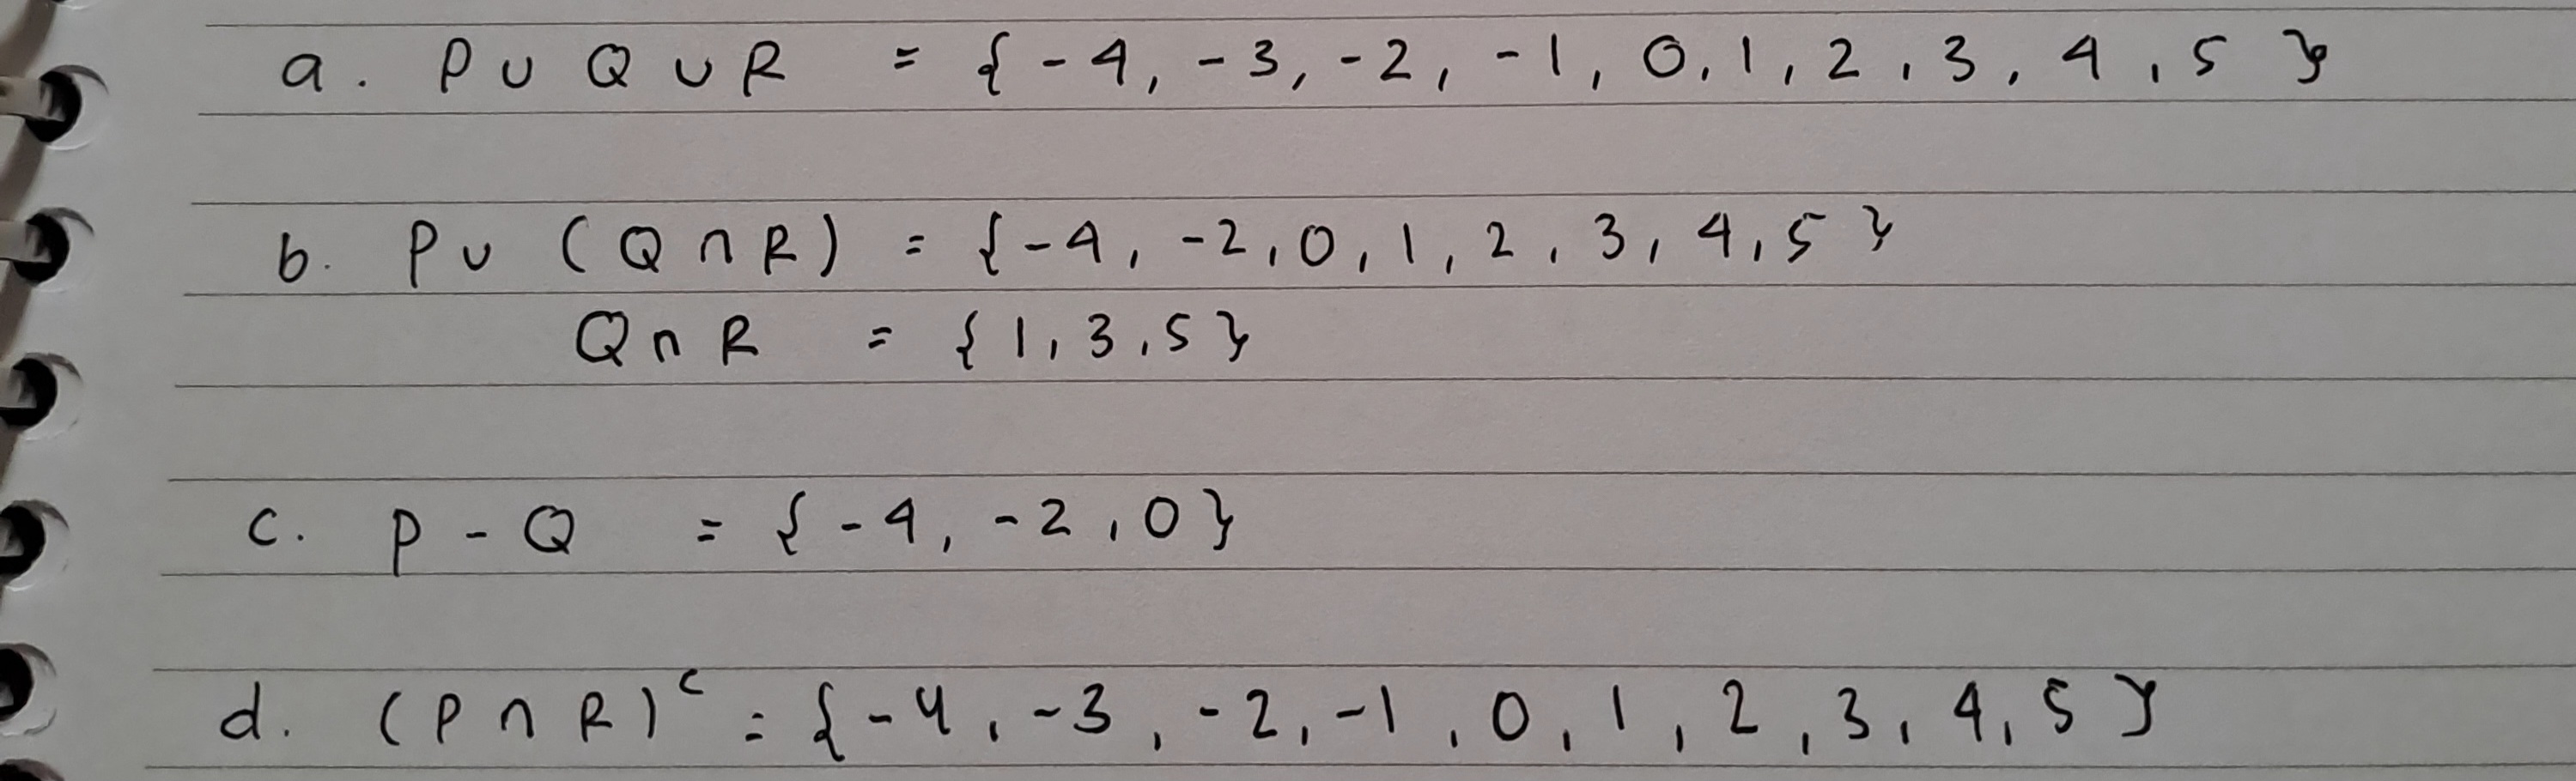 a. P ∪ Q ∪ R = {-4, -3, -2, -1, 0, 1, 2, 3, 4, 5}
b. P ∪ (Q ∩ R) = {-4, -2, 0, 1, 2, 3, 4, 5}
Q ∩ R = {1, 3, 5}
c. P - Q = {-4, -2, 0}
d. (P ∩ R)ᶜ = {-4, -3, -2, -1, 0, 1, 2, 3, 4, 5}